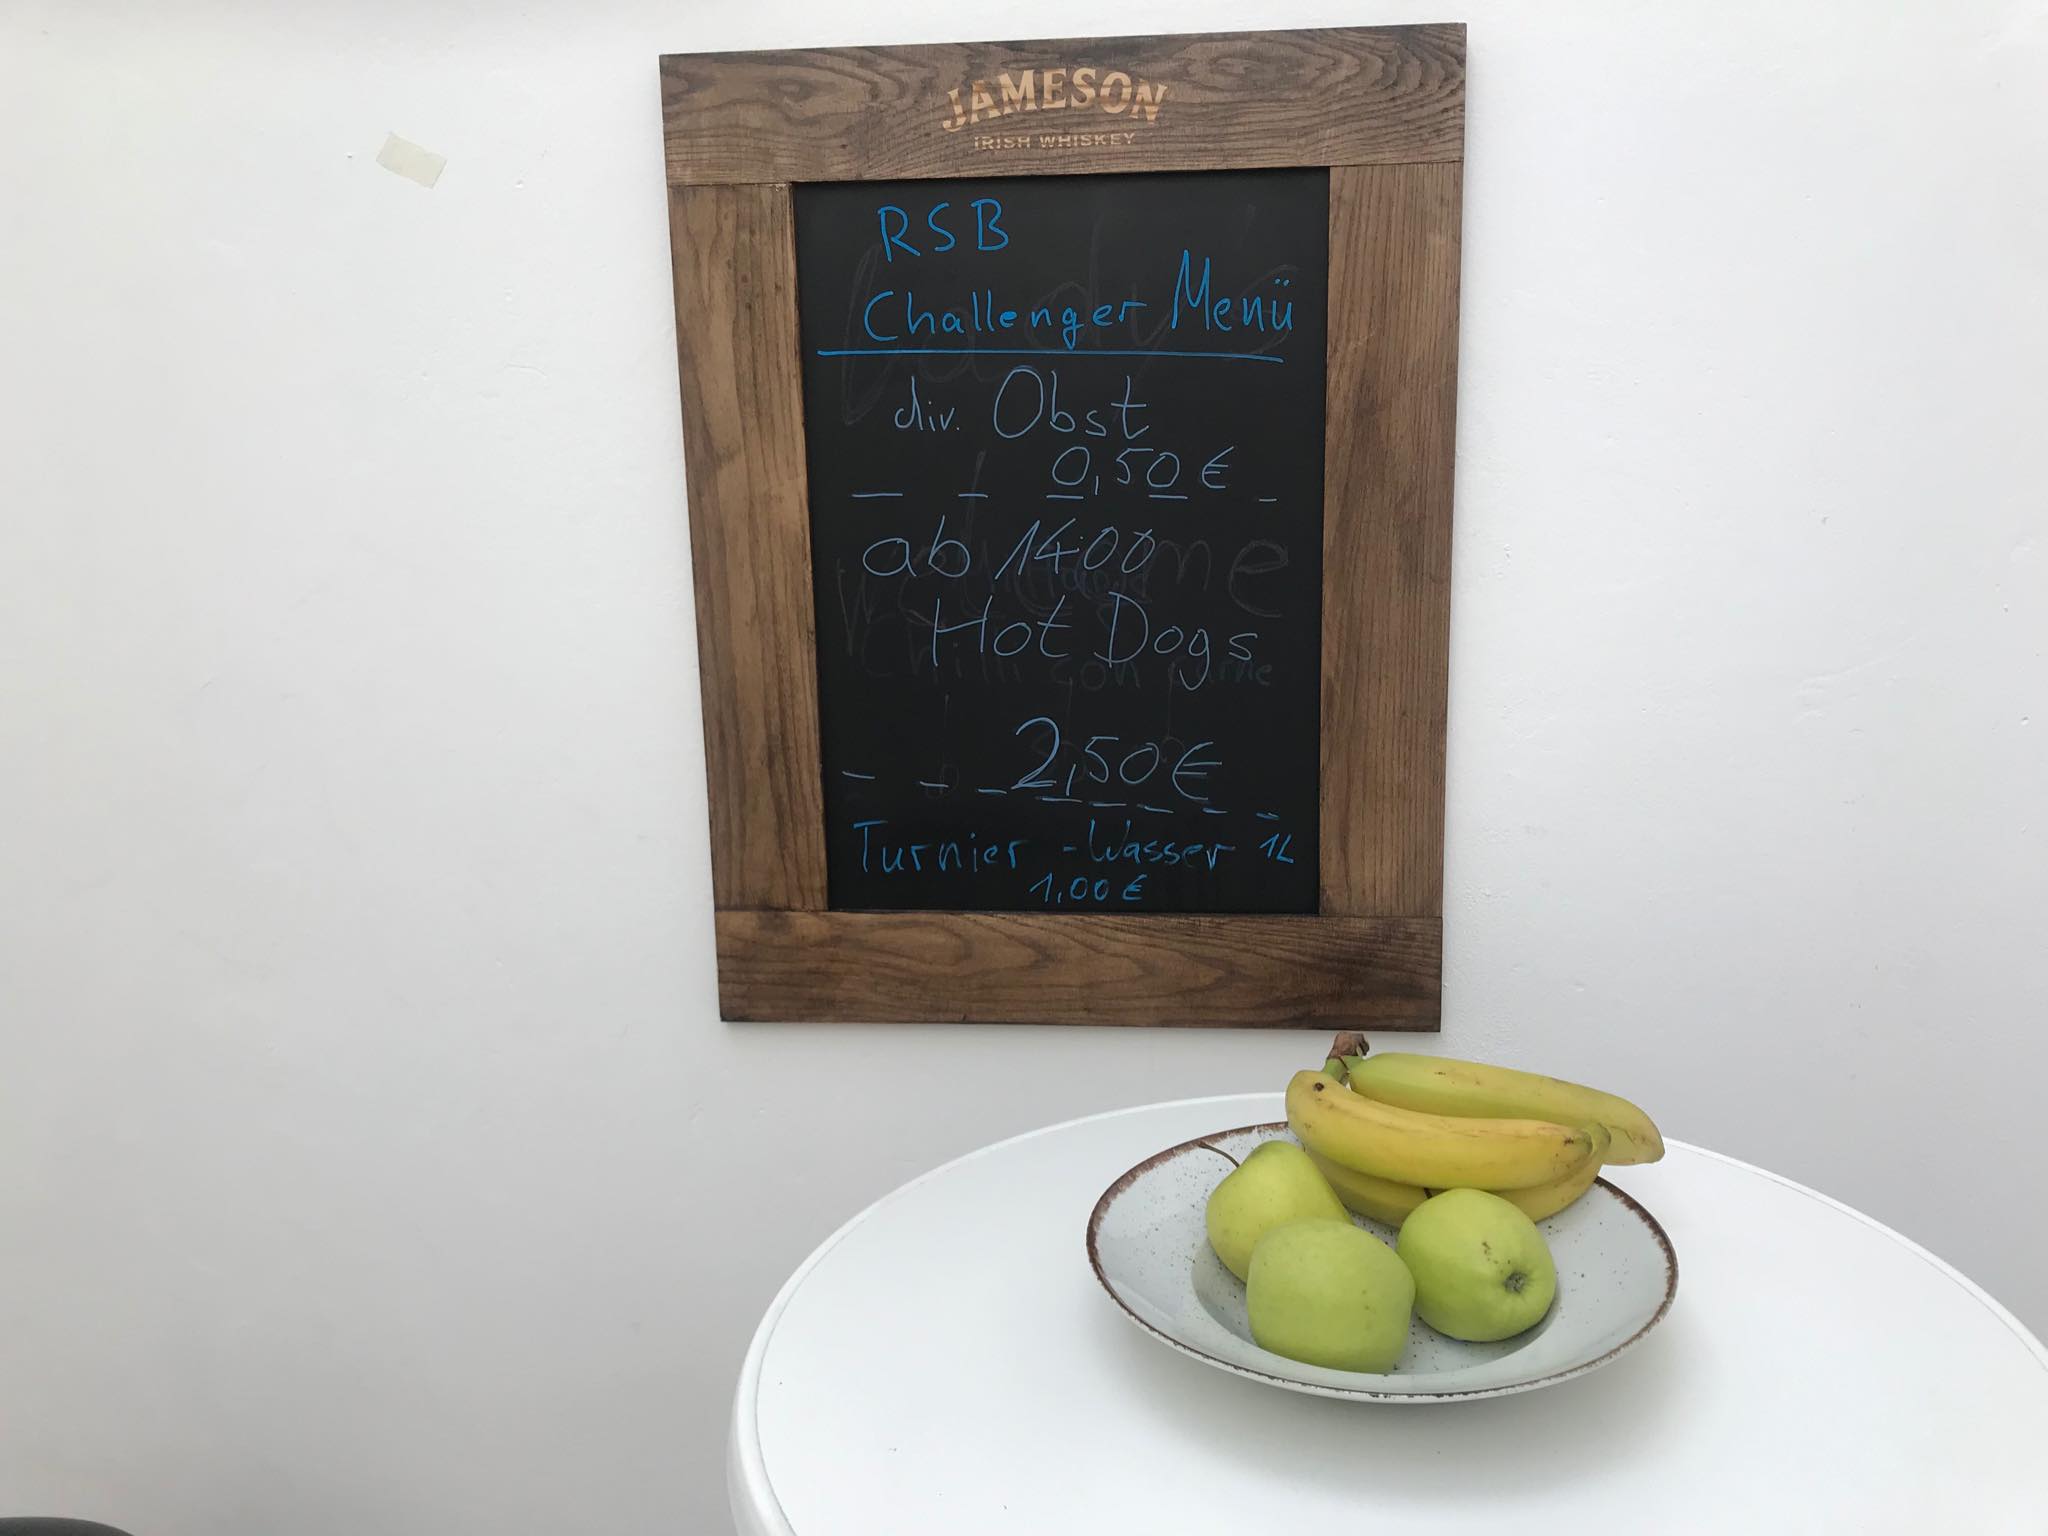 JAMESON
IRISH WHISKEY
RSB
Challenger Menü
div. Obst
0,50 €
ab 14:00
Hot Dogs
2,50 €
Turnier-Wasser 1L
1,00 €